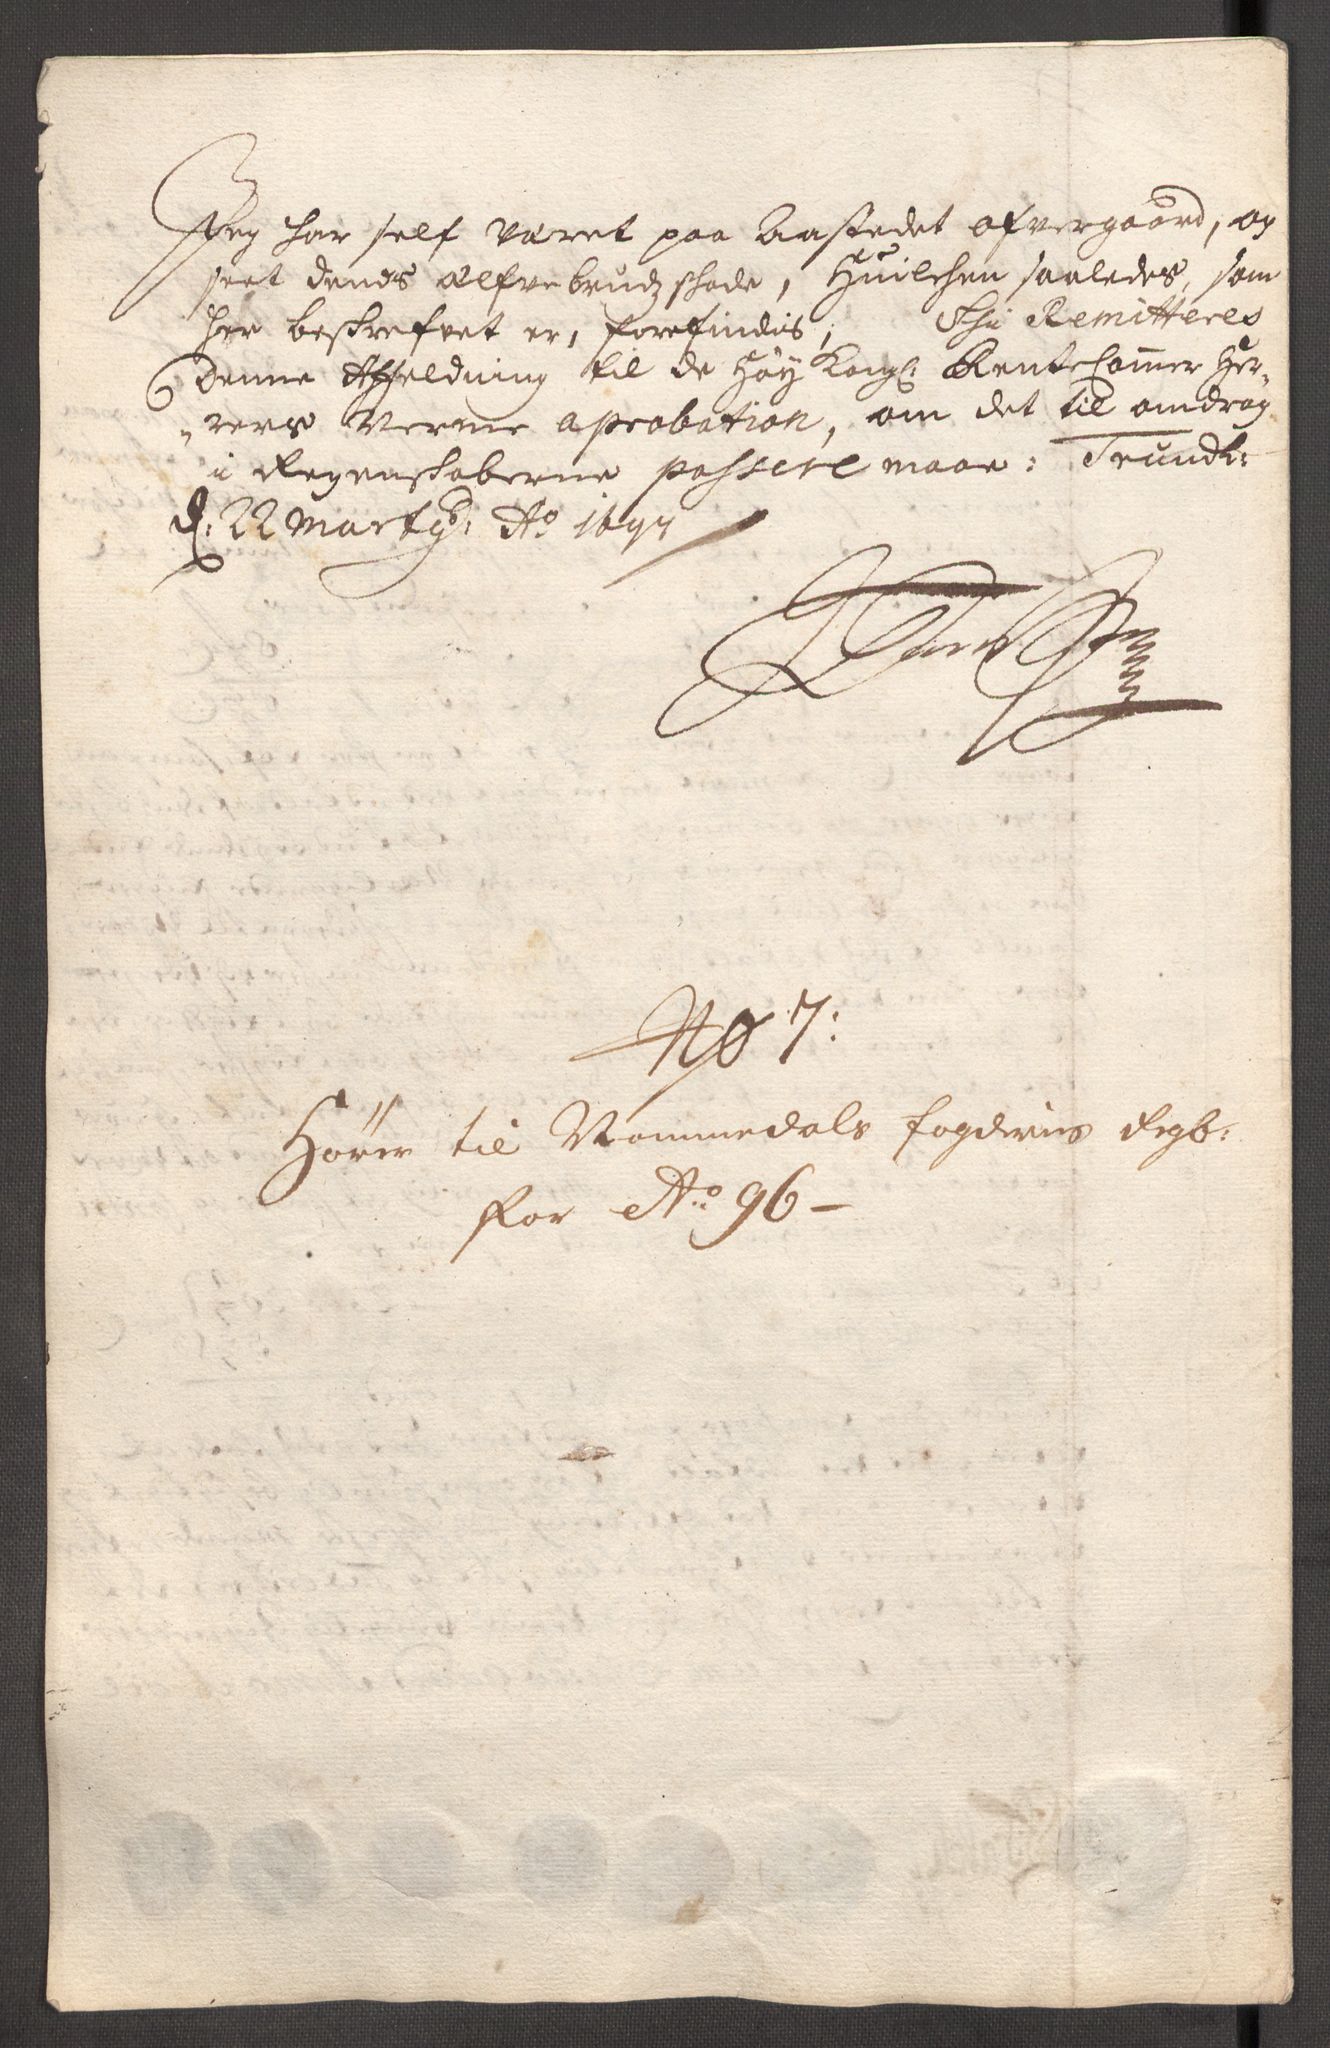 Jeg har self været paa Aastedet ofvergaard, og
seet dends Elfvebrudz skade, Huilchen saaledes, som
her beskrefvet er, forefindis, Thi Remitteres
Denne Affeldning til de Høy Kongl: Rente Camer Her-
-rers Verme aprobation, om det til omdrag
i Regenskaberne passere maae: Trundh:
d: 22 Martÿ: Ao 1697
No 7:
Hører til Nommedals fogderies Regb:
for Ao 96 -